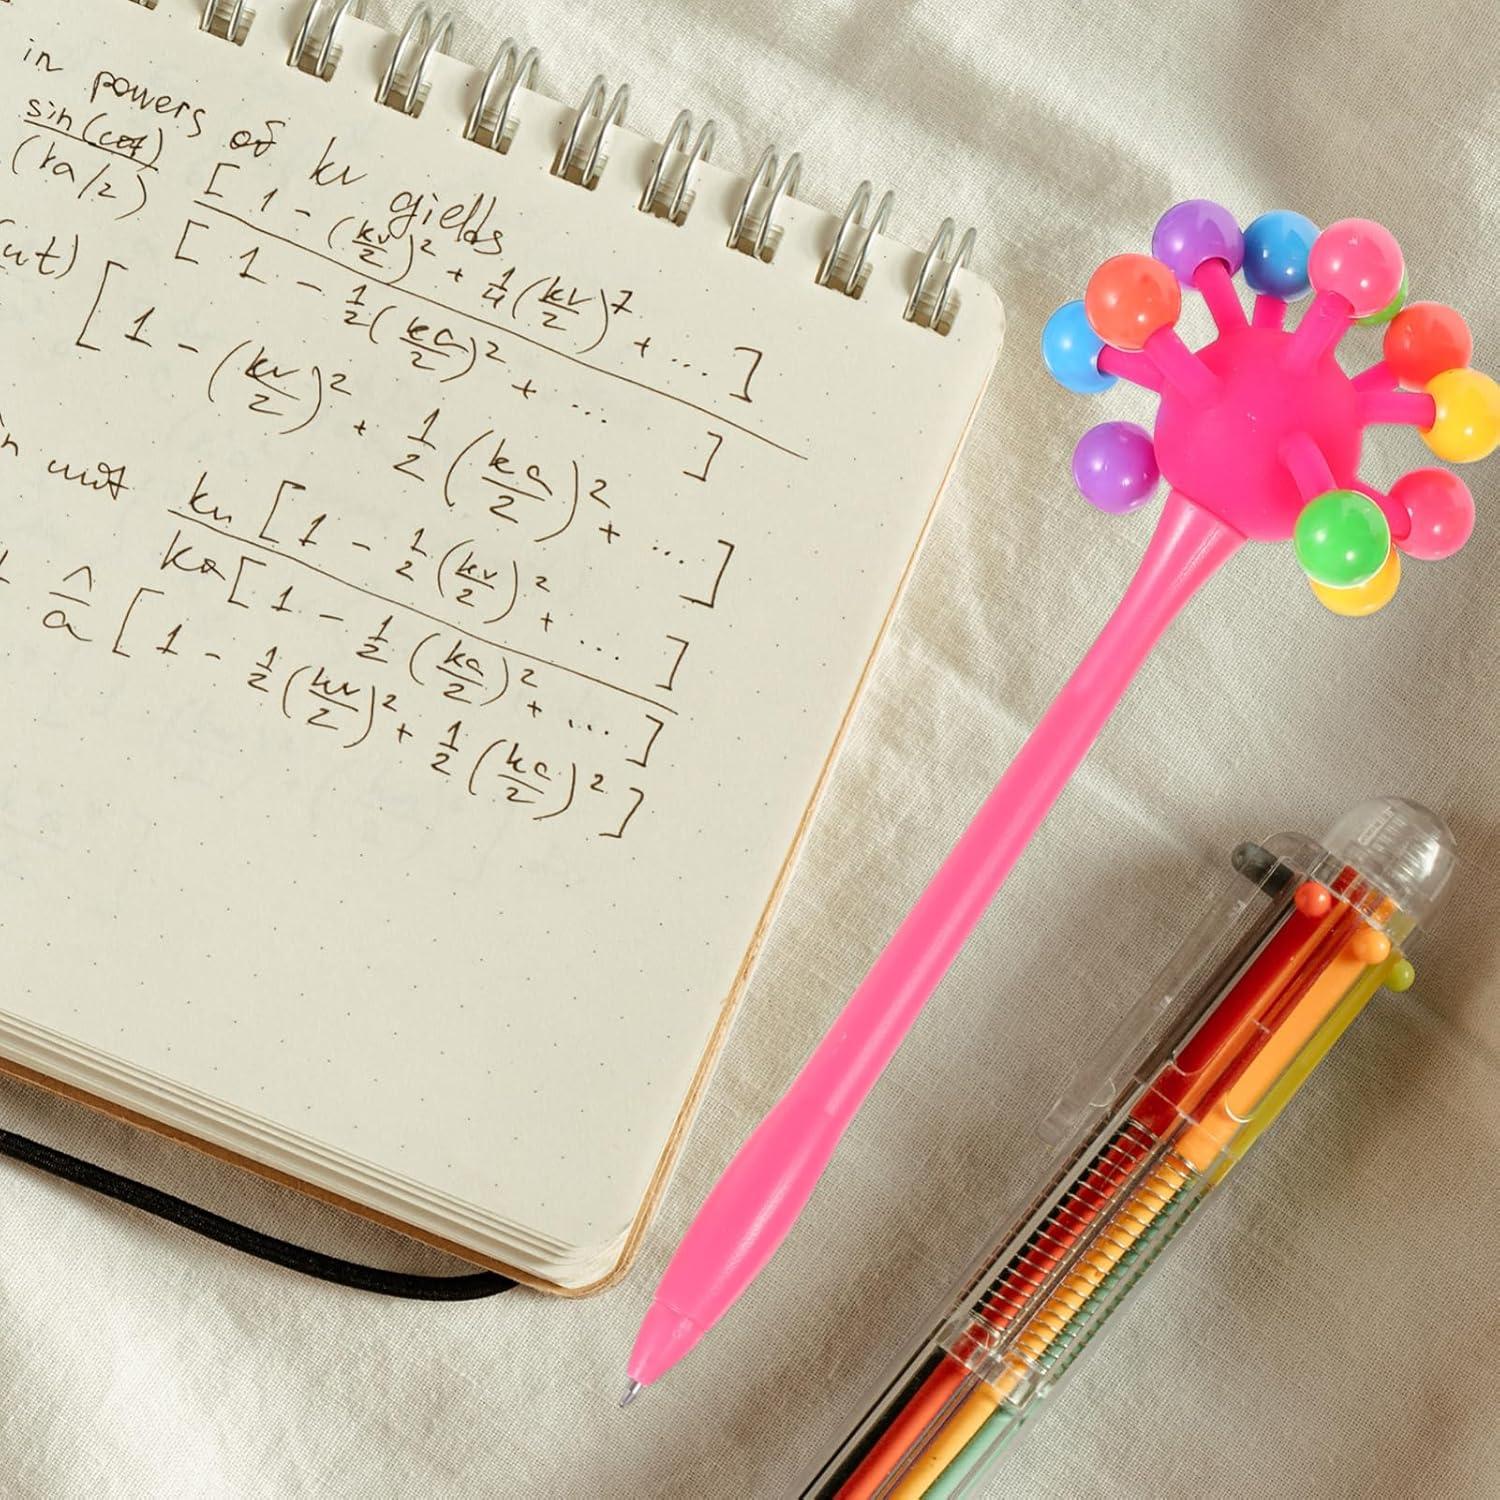 in powers of kv gields
sin(ωt) [ 1 - (kv/2)² + 1/4 (kv/2)⁷ + ... ]
(ka/2) [ 1 - 1/2 (ka/2)² + ... ]
ωt) [ 1 - (kv/2)² + 1/2 (ka/2)² + ... ]
kv [ 1 - 1/2 (kv/2)² + ... ]
ka [ 1 - 1/2 (ka/2)² + ... ]
a [ 1 - 1/2 (kv/2)² + 1/2 (ka/2)² ]